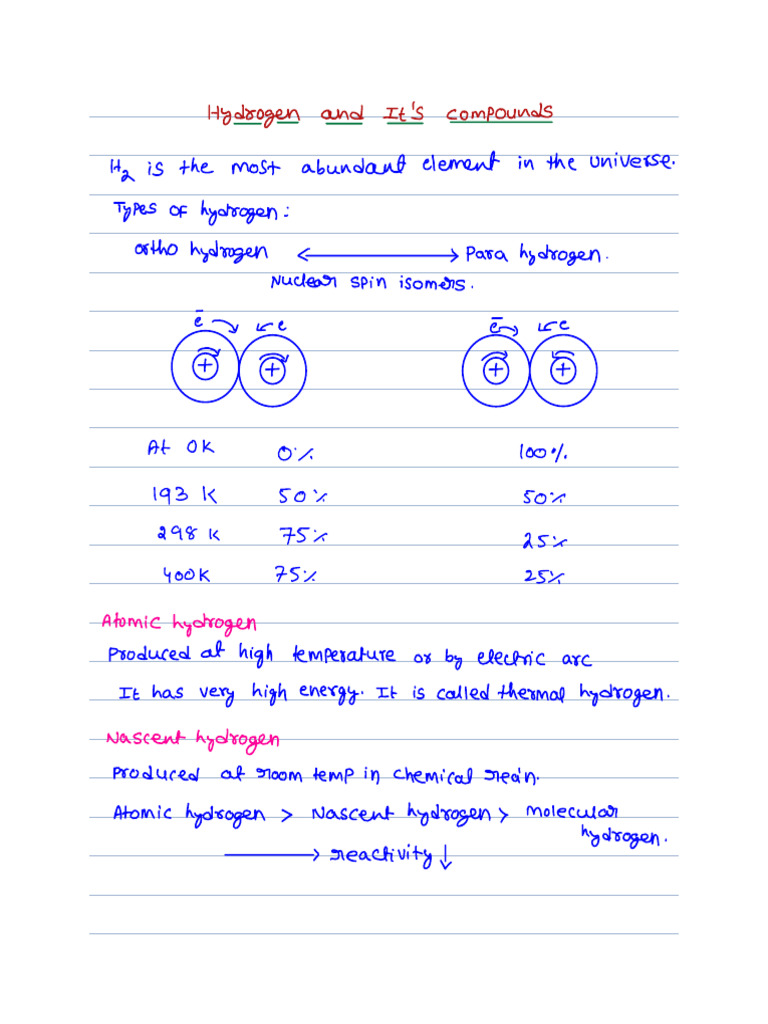 Hydrogen and It's compounds
H2 is the most abundant element in the universe.
Types of hydrogen:
ortho hydrogen ⟷ Para hydrogen.
Nuclear spin isomers.
ē e ē e
+ + + +
At 0K 0% 100%
193 K 50% 50%
298 K 75% 25%
400K 75% 25%
Atomic hydrogen
Produced at high temperature or by electric arc
It has very high energy. It is called thermal hydrogen.
Nascent hydrogen
Produced at room temp in chemical reãn.
Atomic hydrogen > Nascent hydrogen > Molecular
hydrogen.
⟶ reactivity ↓